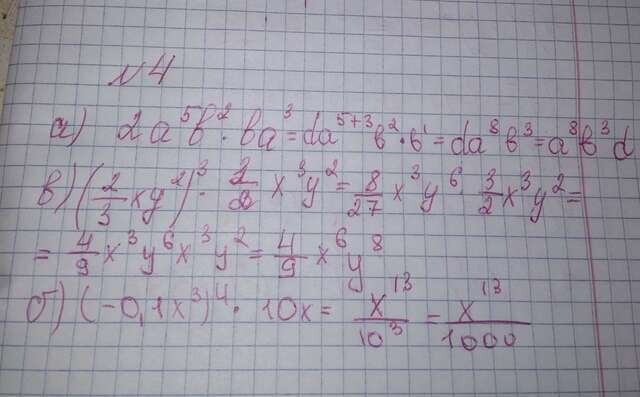 №4
а) 2a⁵b²·ba³=da⁵⁺³b²·b¹=da⁸b³=a⁸b³d
в) (2/3 xy²)³ · 3/2 x³y² = 8/27 x³y⁶ 3/2 x³y² =
= 4/9 x³y⁶x³y² = 4/9 x⁶y⁸
б) (-0,1x³)⁴ · 10x = x¹³/10³ = x¹³/1000